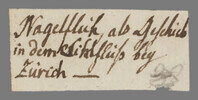 Nagelfluh, als Geschieb
in dem Sihlfluß bey
Zürich —